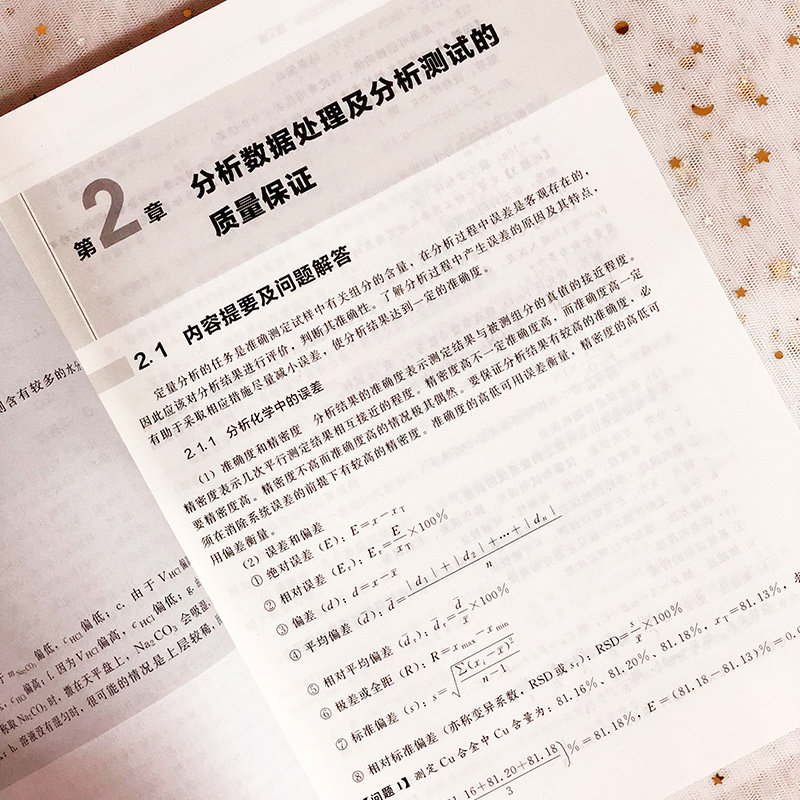 第2章 分析数据处理及分析测试的
质量保证
2.1 内容提要及问题解答
定量分析的任务是准确测定试样中有关组分的含量，在分析过程中误差是客观存在的，
因此应该对分析结果进行评价，判断其准确性。了解分析过程中产生误差的原因及其特点，
有助于采取相应措施尽量减小误差，使分析结果达到一定的准确度。
2.1.1 分析化学中的误差
（1）准确度和精密度 分析结果的准确度表示测定结果与被测组分的真值的接近程度。
精密度表示几次平行测定结果相互接近的程度。精密度高不一定准确度高，而准确度高一定
要精密度高。精密度不高而准确度高的情况极其偶然。要保证分析结果有较高的准确度，必
须在消除系统误差的前提下有较高的精密度。准确度的高低可用误差衡量，精密度的高低可
用偏差衡量。
（2）误差和偏差
① 绝对误差（E）：E=x−x_T
② 相对误差（E_r）：E_r=E/x_T×100%
③ 偏差（d）：d=x−x̄
④ 平均偏差（d̄）：d̄=(|d₁|+|d₂|+…+|dₙ|)/n
⑤ 相对平均偏差（d̄_r）：d̄_r=d̄/x̄×100%
⑥ 极差或全距（R）：R=x_max−x_min
⑦ 标准偏差（s）：s=√(∑(x_i−x̄)²/(n−1))
⑧ 相对标准偏差（亦称变异系数，RSD或s_r）：RSD=s/x̄×100%
问题1】测定Cu合金中Cu含量为：81.16%，81.20%，81.18%，x_T=81.13%，
16+81.20+81.18)/3)%=81.18%，E=(81.18−81.13)%=0.
含有较多的水
m_Na₂CO₃偏低，c_HCl偏低；c. 由于V_HCl偏
c_HCl偏高；f. 因为V_HCl偏高，c_HCl偏低；g.
称取Na₂CO₃时，撒在天平盘上，Na₂CO₃会吸湿
h. 溶液没有混匀时，很可能的情况是上层较稀，